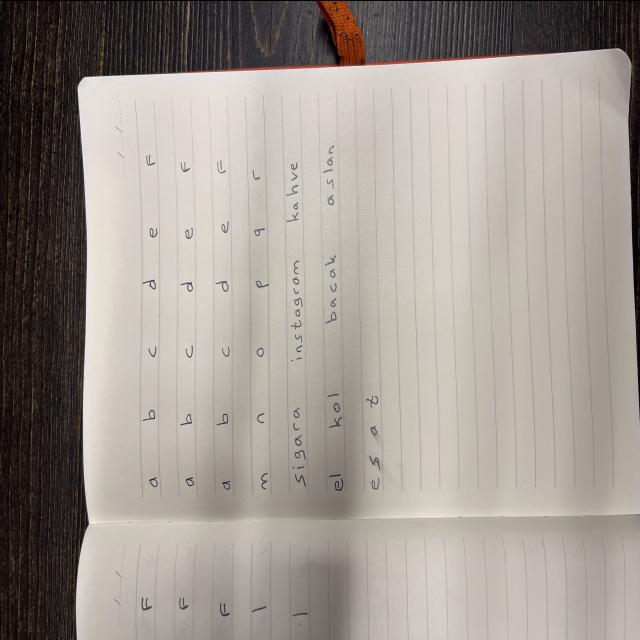 a b c d e F
a b c d e F
a b c d e F
m n o p q r
sigara instagram kahve
el kol bacak aslan
esat
F
F
F
l